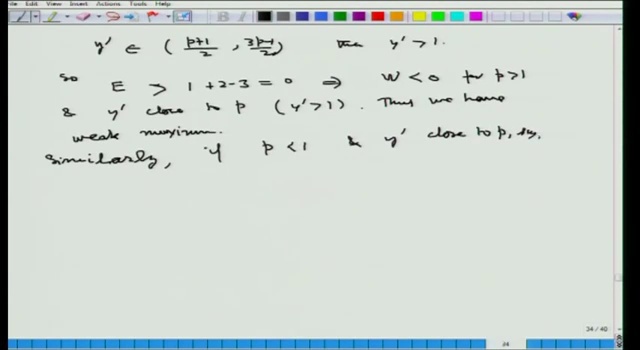 File View Insert Actions Tools Help
y' ∈ ( p+1/2 , 3p-1/2 ) then y' > 1.
So E > 1 + 2 - 3 = 0 ⇒ W < 0 for p > 1
& y' close to p ( y' > 1 ). Thus we have
weak maximum.
Similarly, if p < 1 & y' close to p, say,
34 / 40
34